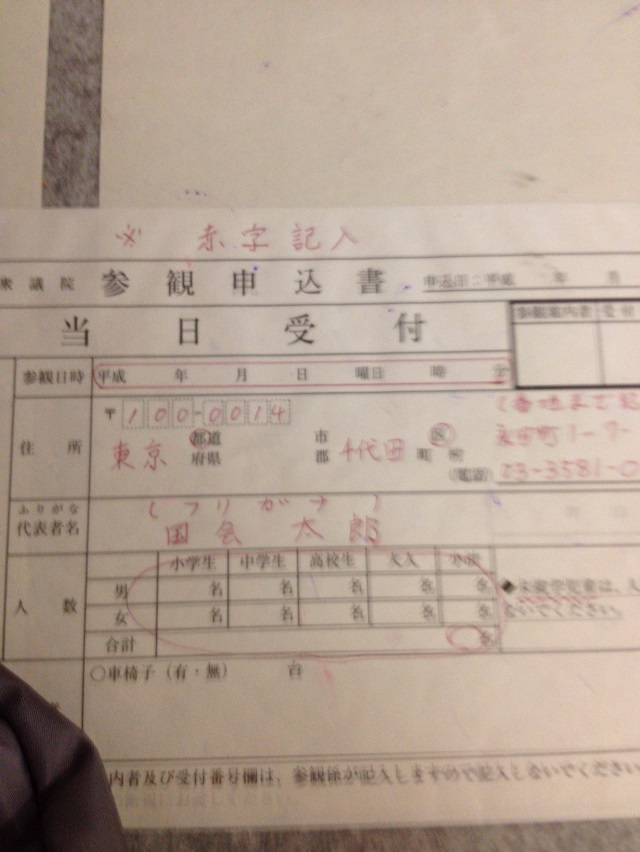 ※ 赤字記入
衆議院 参観申込書 申込日:平成 年 月
当日受付 参観案内者 受付
参観日時 平成 年 月 日 曜日 時 分
〒100-0014 (番地まで
住所 東京 都道府県 市郡 千代田 区町村 永田町1-7-
(電話) 03-3581-0
ふりがな (フリガナ)
代表者名 国会 太郎
小学生 中学生 高校生 大人 小計
人数 男 名 名 名 名 名 ◆未就学児童は、入
女 名 名 名 名 名 ないでください。
合計 名
○車椅子(有・無) 台
内者及び受付番号欄は、参観係が記入しますので記入しないでください